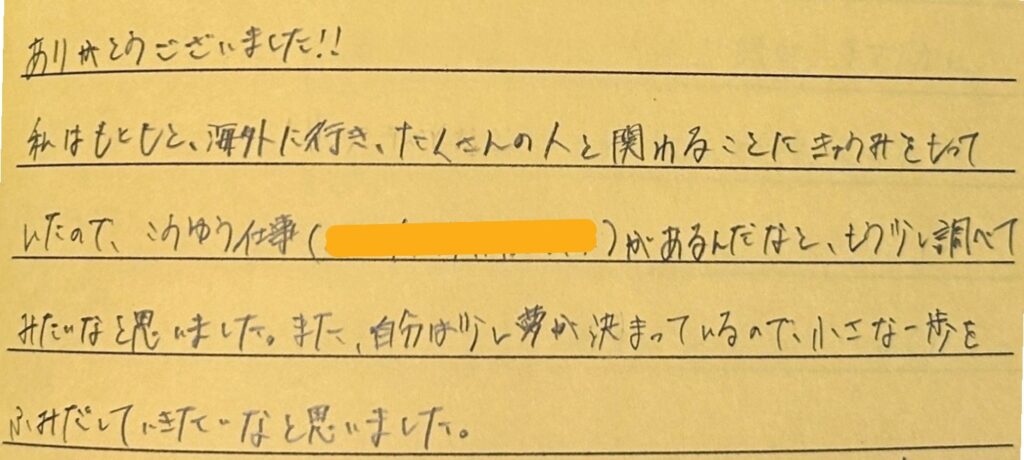 ありがとうございました!!
私はもともと、海外に行き、たくさんの人と関わることにきょうみをもって
いたので、こうゆう仕事( )があるんだなと、もう少し調べて
みたいなと思いました。また、自分は少し夢が決まっているので、小さな一歩を
ふみだしていきたいなと思いました。